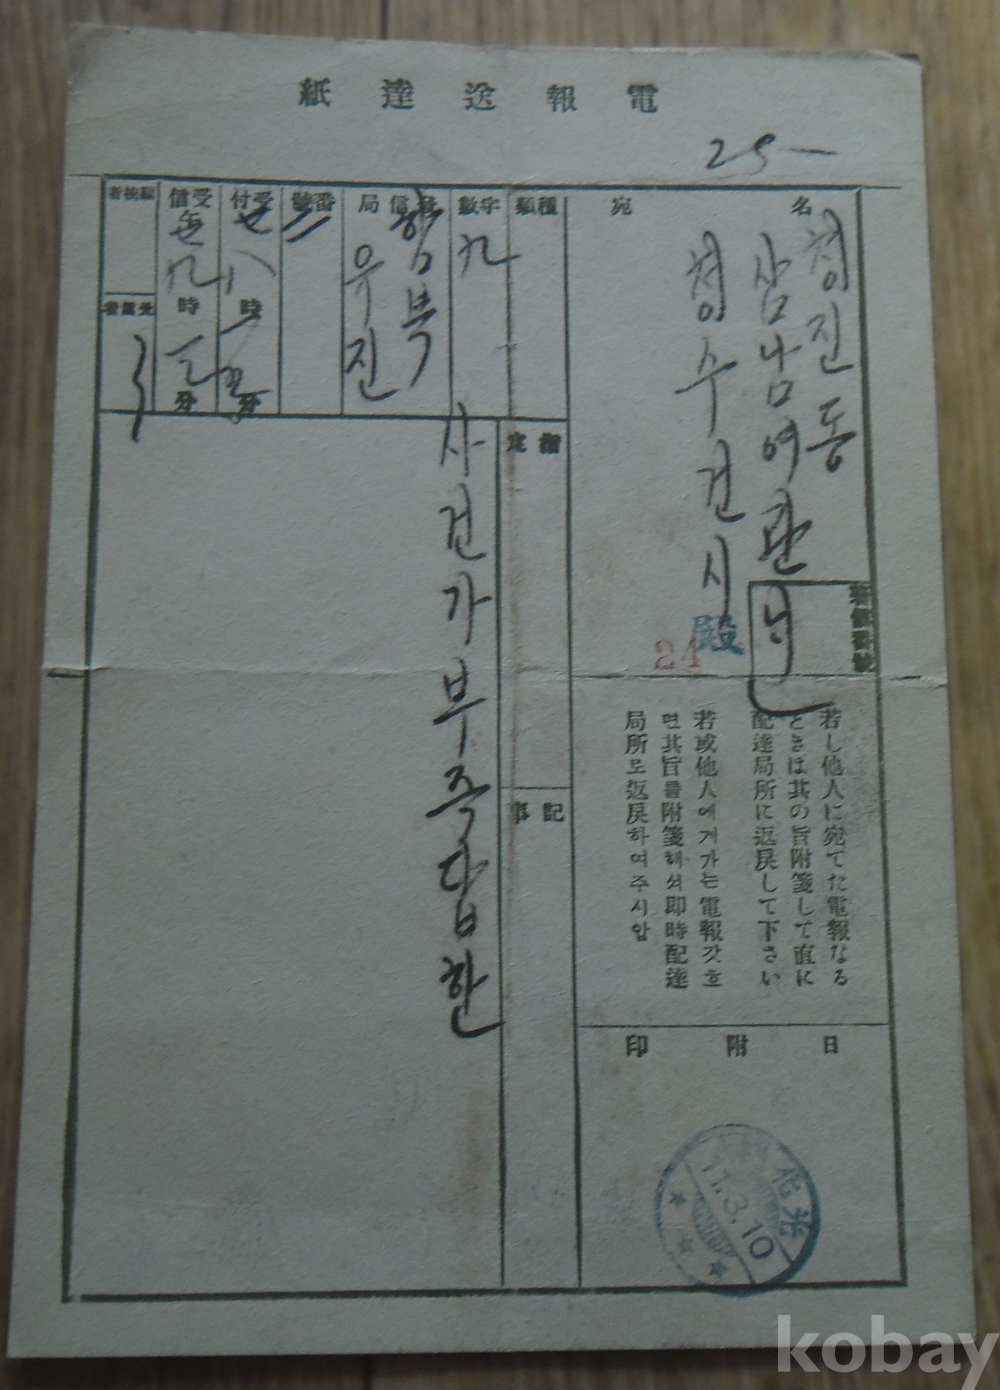 電報送達紙
25
宛名
청진동
삼남여관내
정수건시
殿
24
種類
字數
九
發信局
함북
유진
番號
受付
時
分
受信
九
時
分
受信者
指定
記事
사건가부즉답한
若し他人に宛てた電報なる
ときは其の旨附箋して直に
配達局所に返戻して下さい
若或他人에게가는電報갓호
면其旨를附箋해셔即時配達
局所로返戻하여주시압
日附印
光化
11.3.10
kobay